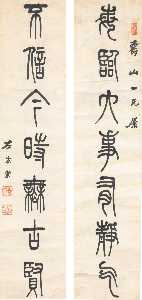 每臨大事有靜氣
壽山一兄屬
不信今時無古賢
左宗棠